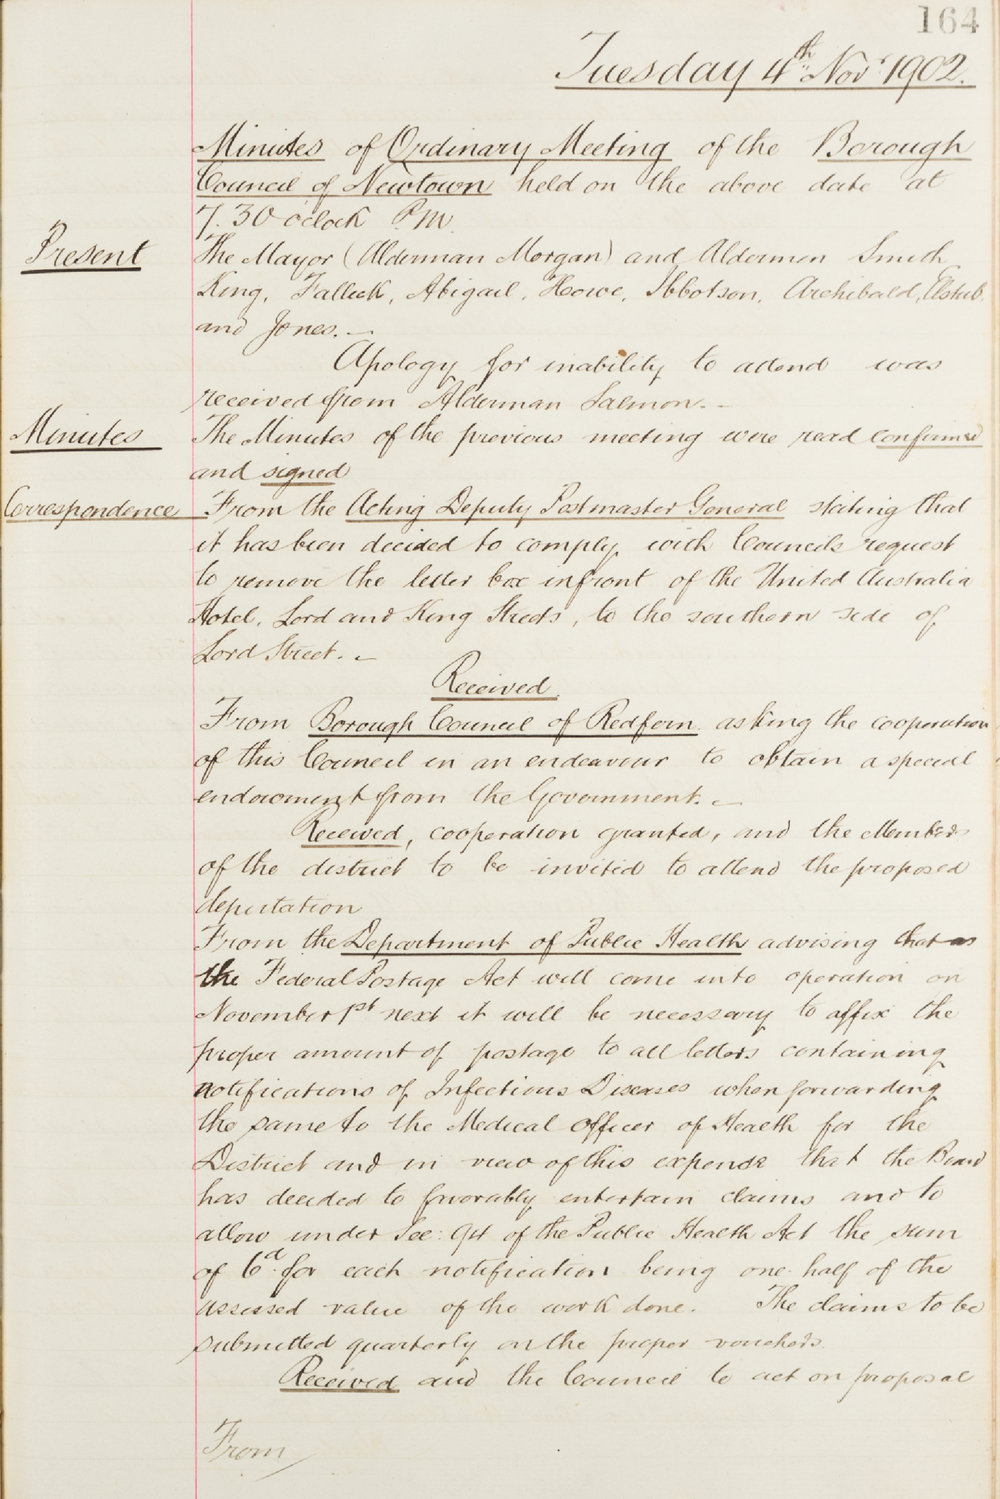 164
Tuesday 4th Novr 1902.
Minutes of Ordinary Meeting of the Borough
Council of Newtown held on the above date at
7.30 oclock P.M.
Present
The Mayor (Alderman Morgan) and Aldermen Smith
King, Fallick, Abigail, Howe, Ibbotson, Archibald, Elstub
and Jones.—
Apology for inability to attend was
received from Alderman Salmon.—
Minutes
The Minutes of the previous meeting were read confirmed
and signed
Correspondence
From the Acting Deputy Postmaster General stating that
it has been decided to comply with Councils request
to remove the letter box infront of the United Australia
Hotel, Lord and King Streets, to the southern side of
Lord Street.—
Received.
From Borough Council of Redfern asking the cooperation
of this Council in an endeavour to obtain a special
endowment from the Government.—
Received, cooperation granted, and the Members
of the district to be invited to attend the proposed
deputation
From the Department of Public Health advising that as
the Federal Postage Act will come into operation on
November 1st next it will be necessary to affix the
proper amount of postage to all letters containing
notifications of Infectious Diseases when forwarding
the same to the Medical Officer of Health for the
District and in view of this expense that the Board
has decided to favorably entertain claims and to
allow under Sec: 94 of the Public Health Act the sum
of 6d. for each notification being one half of the
assessed value of the work done. The claims to be
submitted quarterly on the proper vouchers.
Received and the Council to act on proposal
From